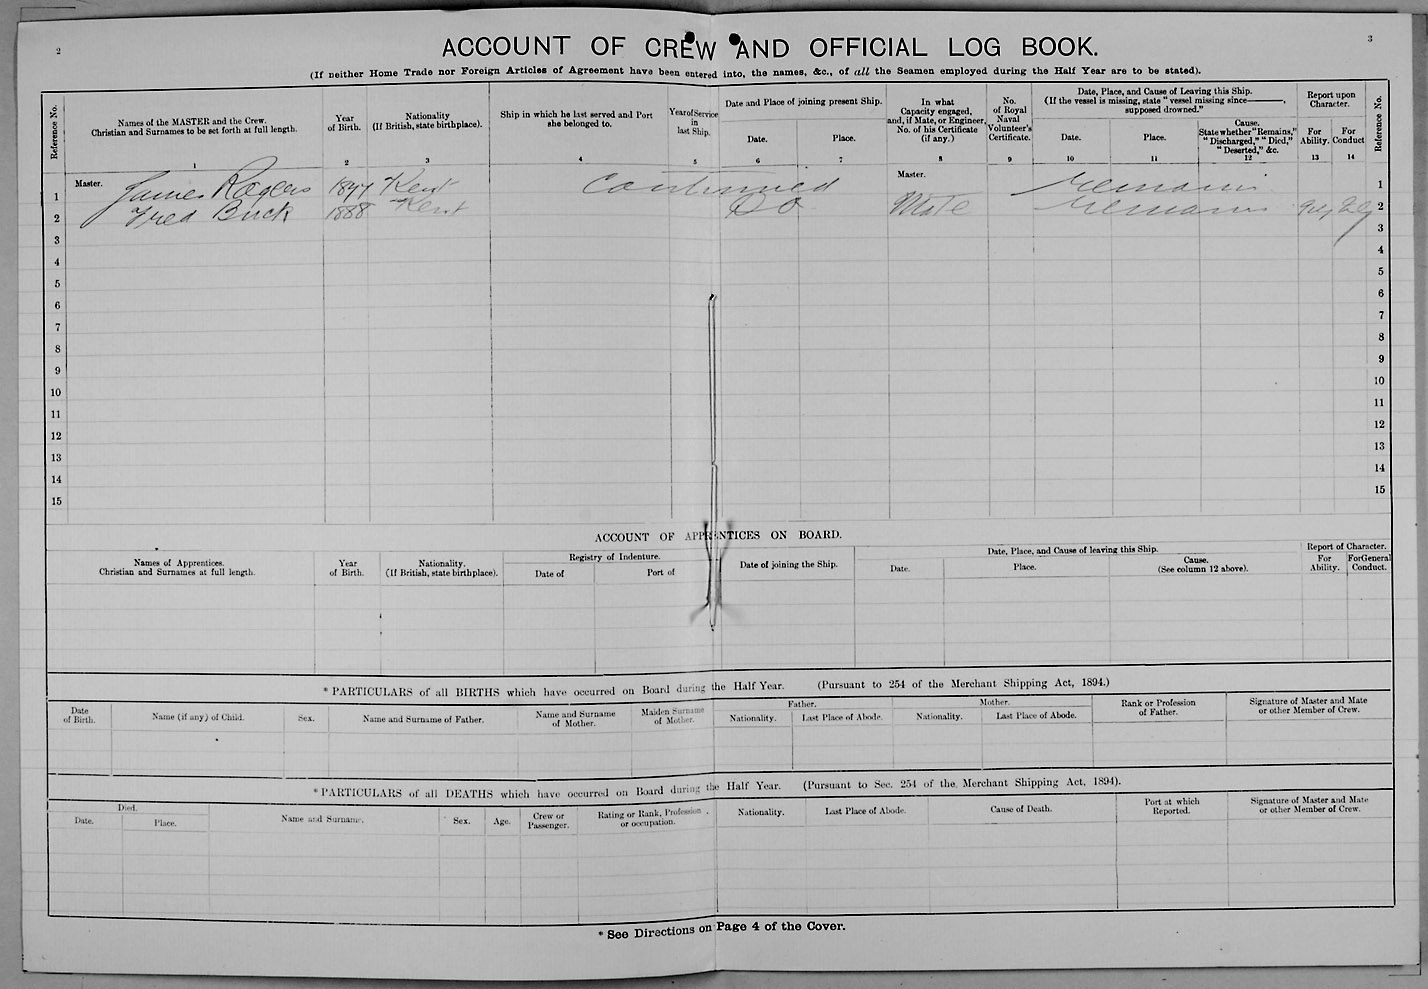 2
3
ACCOUNT OF CREW AND OFFICIAL LOG BOOK.
(If neither Home Trade nor Foreign Articles of Agreement have been entered into, the names, &c., of all the Seamen employed during the Half Year are to be stated).
Reference No.
Names of the MASTER and the Crew.
Christian and Surnames to be set forth at full length.
Year
of Birth.
Nationality
(If British, state birthplace).
Ship in which he last served and Port
she belonged to.
Year of Service
in
last Ship.
Date and Place of joining present Ship.
Date.
Place.
In what
Capacity engaged,
and, if Mate, or Engineer,
No. of his Certificate
(if any.)
No.
of Royal
Naval
Volunteer's
Certificate.
Date, Place, and Cause of Leaving this Ship.
(If the vessel is missing, state "vessel missing since———,
supposed drowned."
Date.
Place.
Cause.
State whether "Remains,"
"Discharged," "Died,"
"Deserted," &c.
Report upon
Character.
For
Ability.
For
Conduct
Reference No.
1 2 3 4 5 6 7 8 9 10 11 12 13 14
1 Master. James Rogers 1897 Kent Continued Master. Remains 1
2 Fred Buck 1888 Kent Do Mate Remains 2
3 3
4 4
5 5
6 6
7 7
8 8
9 9
10 10
11 11
12 12
13 13
14 14
15 15
ACCOUNT OF APPRENTICES ON BOARD.
Names of Apprentices.
Christian and Surnames at full length.
Year
of Birth.
Nationality.
(If British, state birthplace).
Registry of Indenture.
Date of
Port of
Date of joining the Ship.
Date, Place, and Cause of leaving this Ship.
Date.
Place.
Cause.
(See column 12 above).
Report of Character.
For
Ability.
For General
Conduct.
* PARTICULARS of all BIRTHS which have occurred on Board during the Half Year. (Pursuant to 254 of the Merchant Shipping Act, 1894.)
Date
of Birth.
Name (if any) of Child.
Sex.
Name and Surname of Father.
Name and Surname
of Mother.
Maiden Surname
of Mother.
Father.
Nationality.
Last Place of Abode.
Mother.
Nationality.
Last Place of Abode.
Rank or Profession
of Father.
Signature of Master and Mate
or other Member of Crew.
* PARTICULARS of all DEATHS which have occurred on Board during the Half Year. (Pursuant to Sec. 254 of the Merchant Shipping Act, 1894).
Died.
Date.
Place.
Name and Surname.
Sex.
Age.
Crew or
Passenger.
Rating or Rank, Profession
or occupation.
Nationality.
Last Place of Abode.
Cause of Death.
Port at which
Reported.
Signature of Master and Mate
or other Member of Crew.
* See Directions on Page 4 of the Cover.